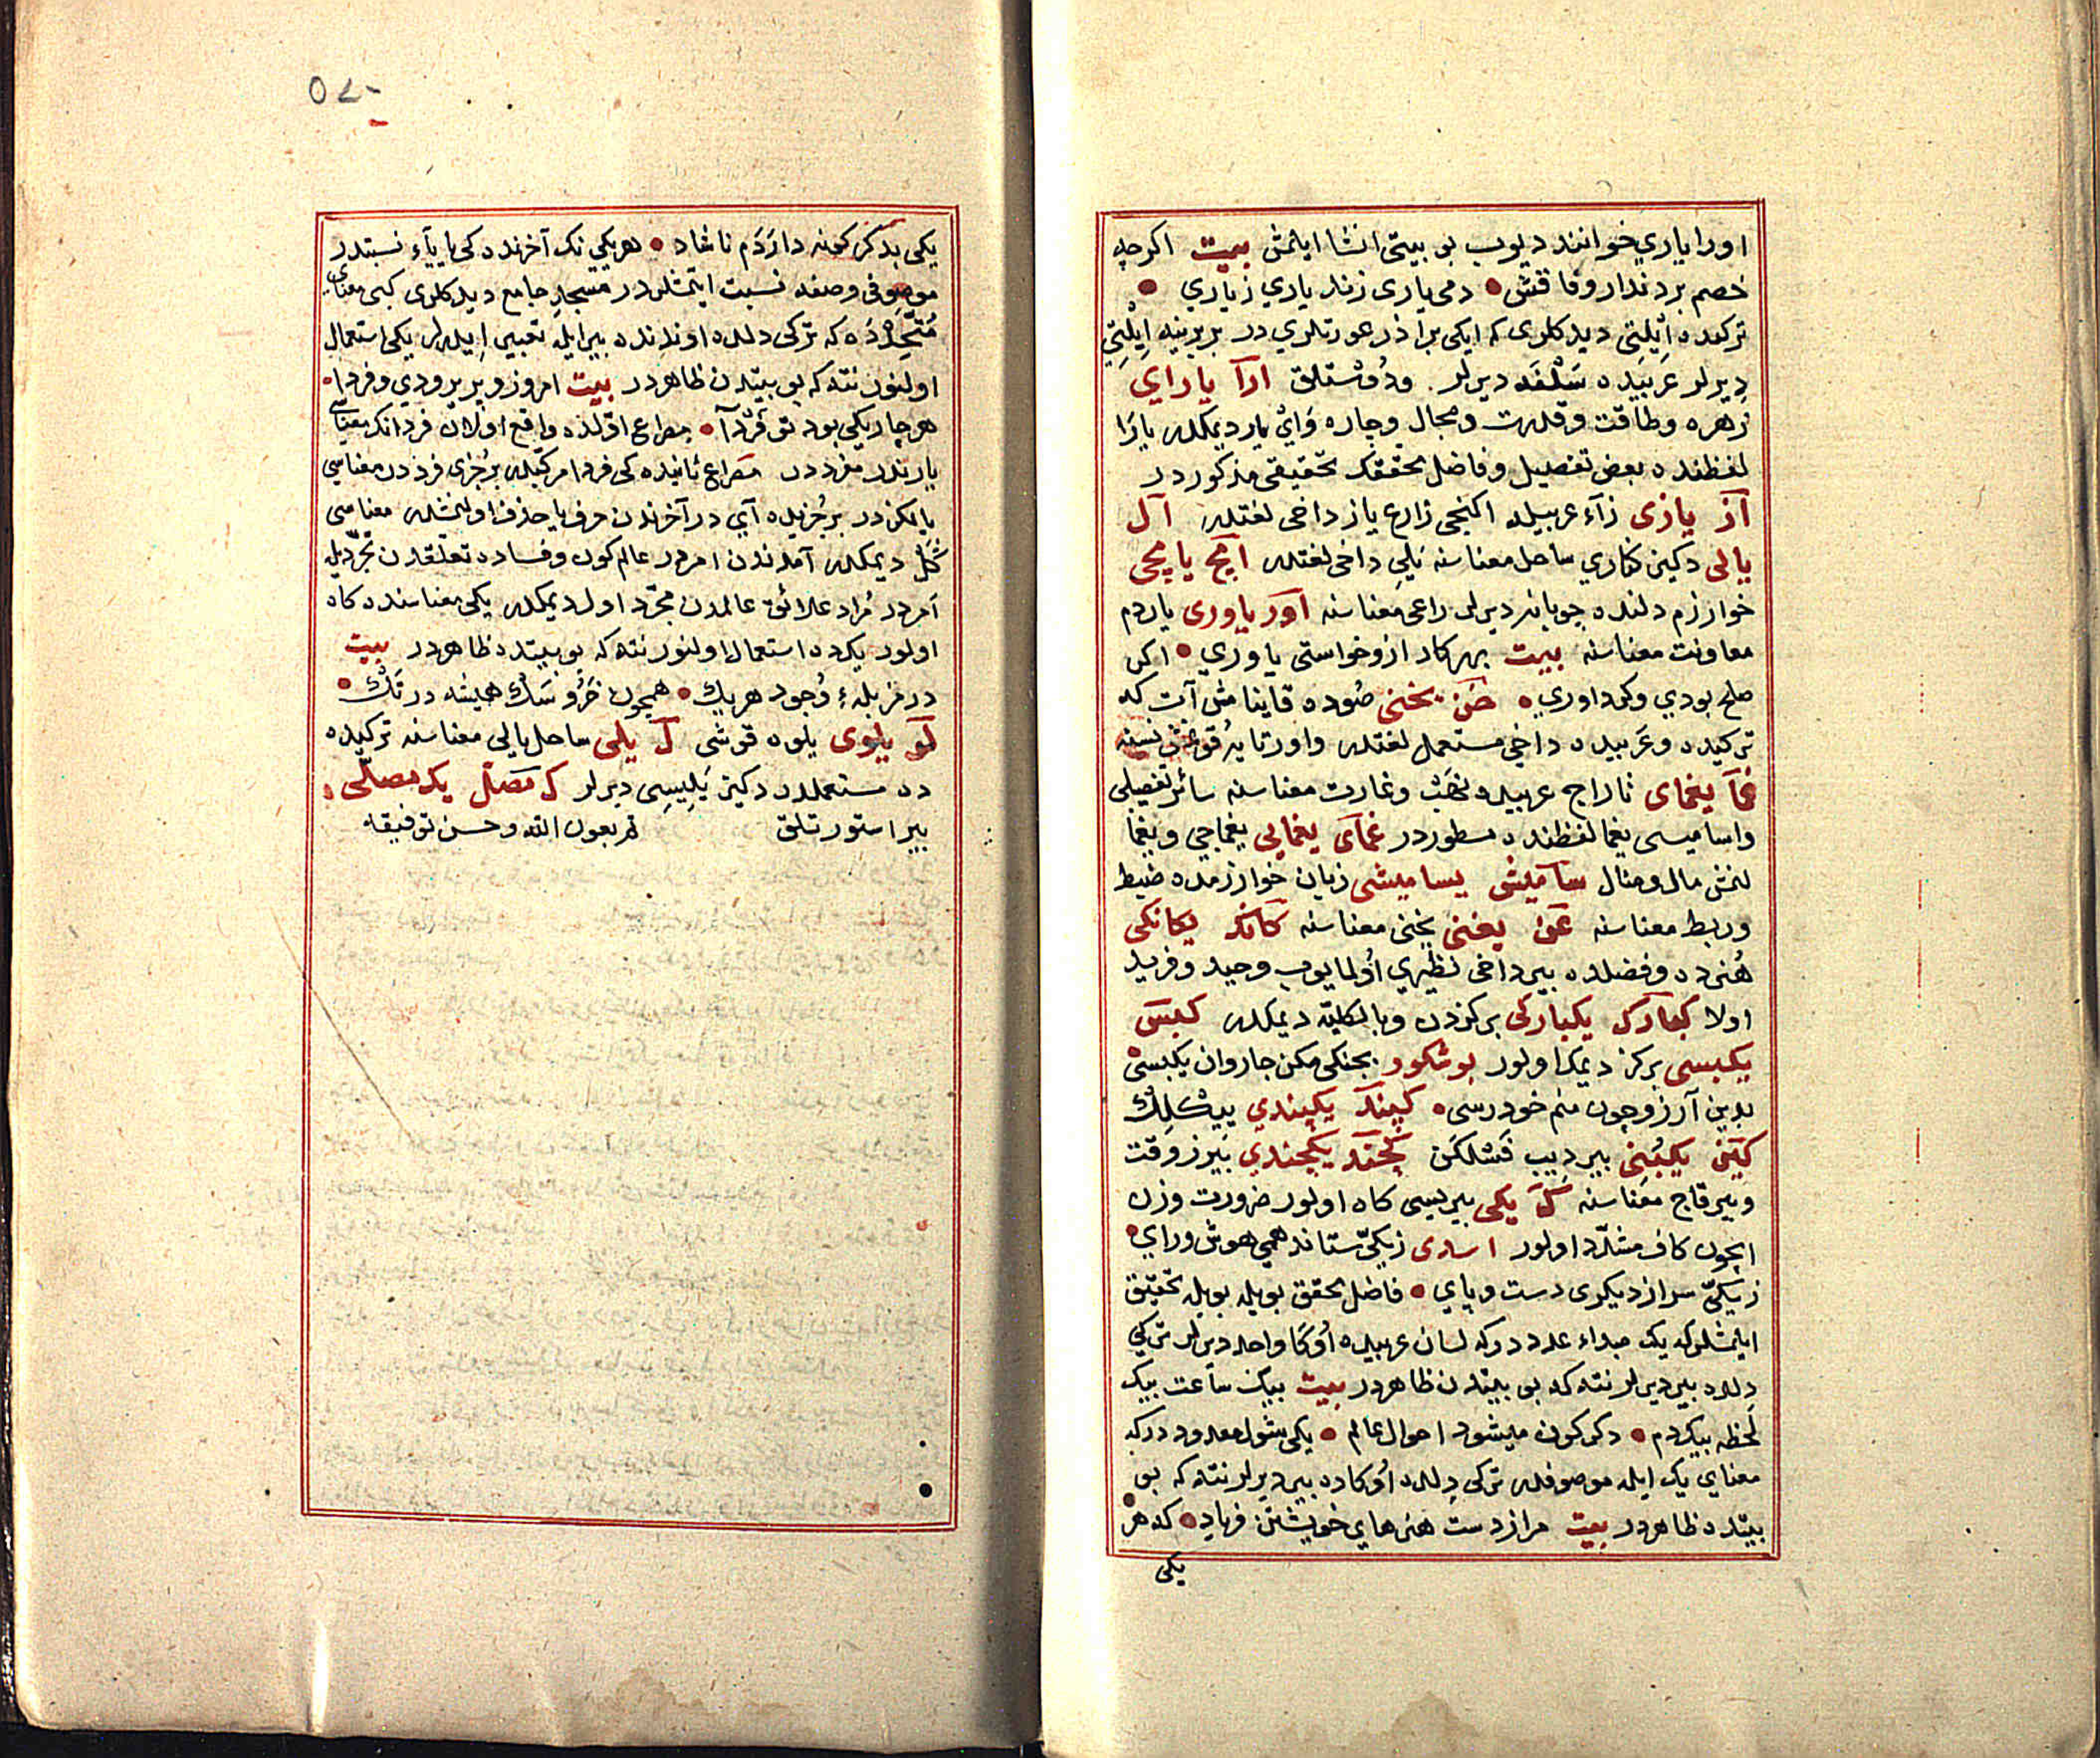 اورا ياري خوانند ديوب بو بيتى انشا ايلمش بيت اكرچه
خصم بردندار وفا قش • دمى يارى زند ياري زياري •
تركده ايلتى ديدكلرى كه ايكى براذر عورتلري در بربرينه ايلتى
ديرلر عربيده سلفه ديرلر . ودوستلق ارآ ياراي
زهره وطاقت وقدرت ومجال وچاره واى يار ديمكدر يارا
لفظنده بعض تفصيل وفاضل محققك تحقيقى مذكوردر
آز يازى زآء عربيله اكنجى زارع ياز داخى لغتدر آل
يالى دكيز كنارى ساحل معناسنه يلي داخى لغتدر آمچ يامچى
خوارزم دلنده چوبانه ديرلر راعى معناسنه آور ياورى ياردم
معاونت معناسنه بيت بهر كار ازو خواستى ياوري • اكر
صلح بودي وكر داوري • خن يخنى صوده قاينامش آت كه
تركيده وعربيده داخى مستعمل لغتدر واورتايه قونمش نسنه
غمآ يغماى تاراج عربيده نهب وغارت معناسنه سائر تفصيلى
واساميسى يغما لفظنده مسطوردر غمآى يغمايى يغماجي ويغما
لنمش مال ومنال سآميش يساميشى زبان خوارزمده ضبط
وربط معناسنه غن يغنى يخنى معناسنه كآنك يكانكى
هنرده وفضلده بير داخى نظيري اولمايوب وحيد وفريد
اولا كبآرك يكباركى بركزدن وبالكليه ديمكدر كبس
يكبسى بركز ديمك اولور بو شكور بجنكى مكن جاروان يكبسى
بدين آرزو چون منم خود رسى • كپند يكپندي بيشكلك
كبن يكبنى بير ديب قشلكن كچند يكچندي بير زوقت
وبير قاچ معناسنه ك يكى بيريسى كاه اولور ضرورت وزن
ايچون كاف مشدد اولور اسدى زيكى ستاند همى هوش وراي •
زيكى سر از ديكرى دست وپاي • فاضل محقق بويله بويله تحقيق
ايلمشلركه يك مبداء عدددركه لسان عربيده اوكا واحد ديرلر تركى
دلده بير ديرلر نته كه بو بيتدن ظاهردر بيت بيك ساعت بيك
لحظه بيكدم • دكركون ميشود احوال عالم • يكى شول معدوددركه
معناي يك ايله موصوفدر تركى دلده اوكاده بير ديرلر نته كه بو
بيتده ظاهردر بيت مرا از دست هنرهاي خويشتن فرياد • كه هر
يكى
٥٢٠
يكى بدكر كونه دارَدم ناشاد • هر يكي نك آخرنده كى يا ياء نسبتدر
موصوفى وصفه نسبت ايتمشلردر مسجد جامع ديدكلرى كبى معناى
متحدده كه تركى دلده اوندنده بير ايله تعبير ايدرلر يكى استعمال
اولنور نته كه بو بيتدن ظاهردر بيت امروز وپرير ودي وفردا •
هر چار يكى بود تو فردآ • مصراع اولده واقع اولان فردانك معناسى
يارندر مفرددر مصراع ثانيده كى فردا مركبدر بر جزى فرددر معناسى
يالكزدر بر جزيده آي در آخرندن حرف يا حذف اولنمشدر معناسى
كل ديمكدر آمدندن امردر عالم كون وفساده تعلقدن تجرديله
امردر مراد علائق عالمدن مجرد اول ديمكدر يكى معناسنده كاه
اولور يكده استعمال اولنور نته كه بو بيتده ظاهردر بيت
در مزبلهء وجود هر يك • همچون خر وسك هميشه در تك •
لو يلوى يلوه قوشى ل يلى ساحل يالى معناسنه تركيده
ده مستعملدر دكيز يليسى ديرلر ك مصل يك مصلحى
بير استور تلق تم بعون الله وحسن توفيقه